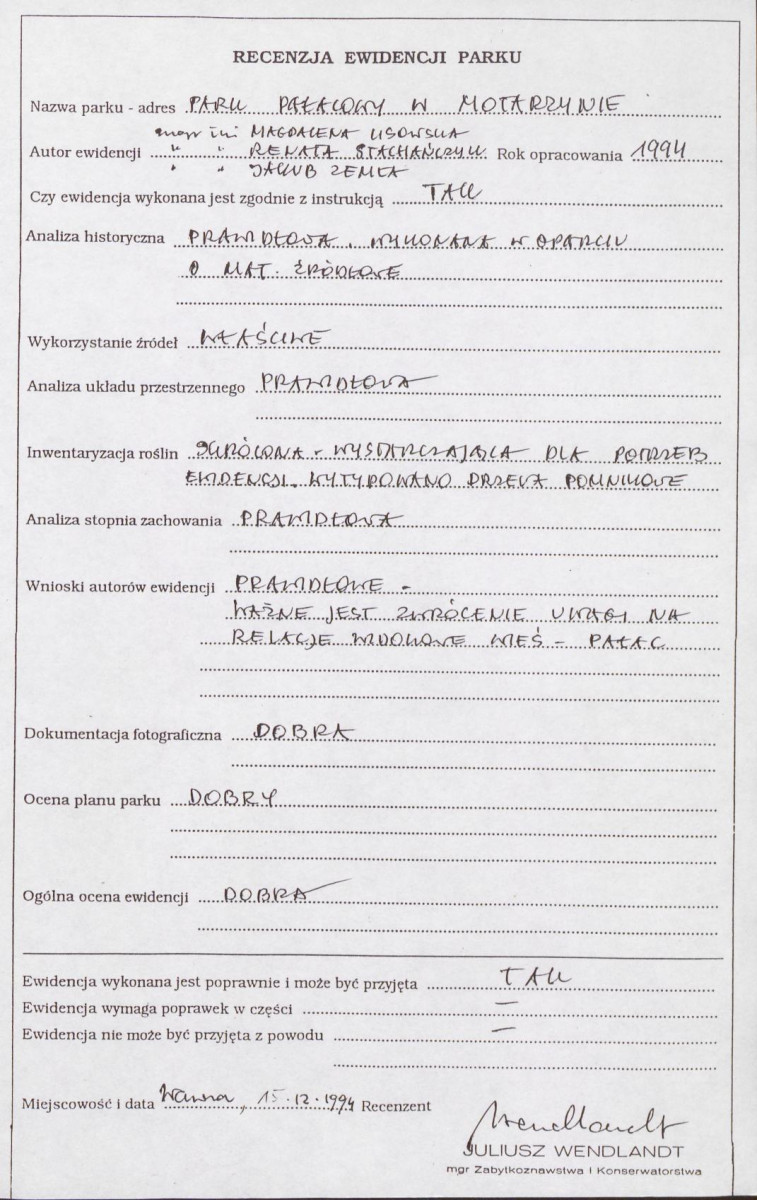 RECENZJA EWIDENCJI PARKU
Nazwa parku - adres PARK PAŁACOWY W MOTARZYNIE
mgr inż MAGDALENA LISOWSKA
Autor ewidencji " " RENATA STACHAŃCZYK Rok opracowania 1994
" " JAKUB ZEMŁA
Czy ewidencja wykonana jest zgodnie z instrukcją TAK
Analiza historyczna PRAWIDŁOWA, WYKONANA W OPARCIU
O MAT. ŹRÓDŁOWE
Wykorzystanie źródeł WŁAŚCIWE
Analiza układu przestrzennego PRAWIDŁOWA
Inwentaryzacja roślin SKRÓCONA - WYSTARCZAJĄCA DLA POTRZEB
EWIDENCJI. WYTYPOWANO DRZEWA POMNIKOWE
Analiza stopnia zachowania PRAWIDŁOWA
Wnioski autorów ewidencji PRAWIDŁOWE -
WAŻNE JEST ZWRÓCENIE UWAGI NA
RELACJE WIDOKOWE WIEŚ - PAŁAC
Dokumentacja fotograficzna DOBRA
Ocena planu parku DOBRY
Ogólna ocena ewidencji DOBRA
Ewidencja wykonana jest poprawnie i może być przyjęta TAK
Ewidencja wymaga poprawek w części —
Ewidencja nie może być przyjęta z powodu —
Miejscowość i data Warszawa, 15.12.1994 Recenzent
Wendlandt
JULIUSZ WENDLANDT
mgr Zabytkoznawstwa i Konserwatorstwa